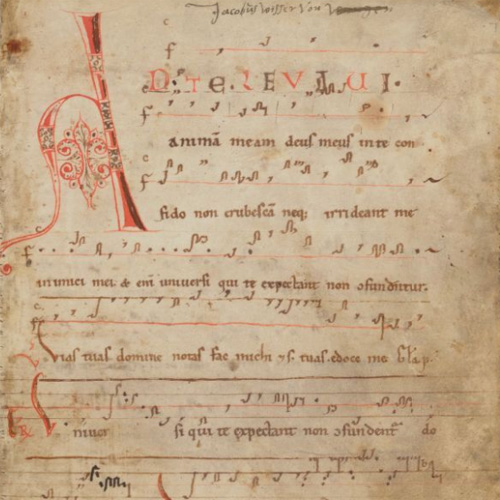 Jacobus wisser von
AD TE LEVAVI
animā meam deus meus in te con
fido non erubescā neq; irrideant me
inimici mei & eni universi qui te expectant non ɔfundūtur.
Vias tuas domine notas fac michi & s. tuas edoce me
univer si qui te expectant non ɔfundent do